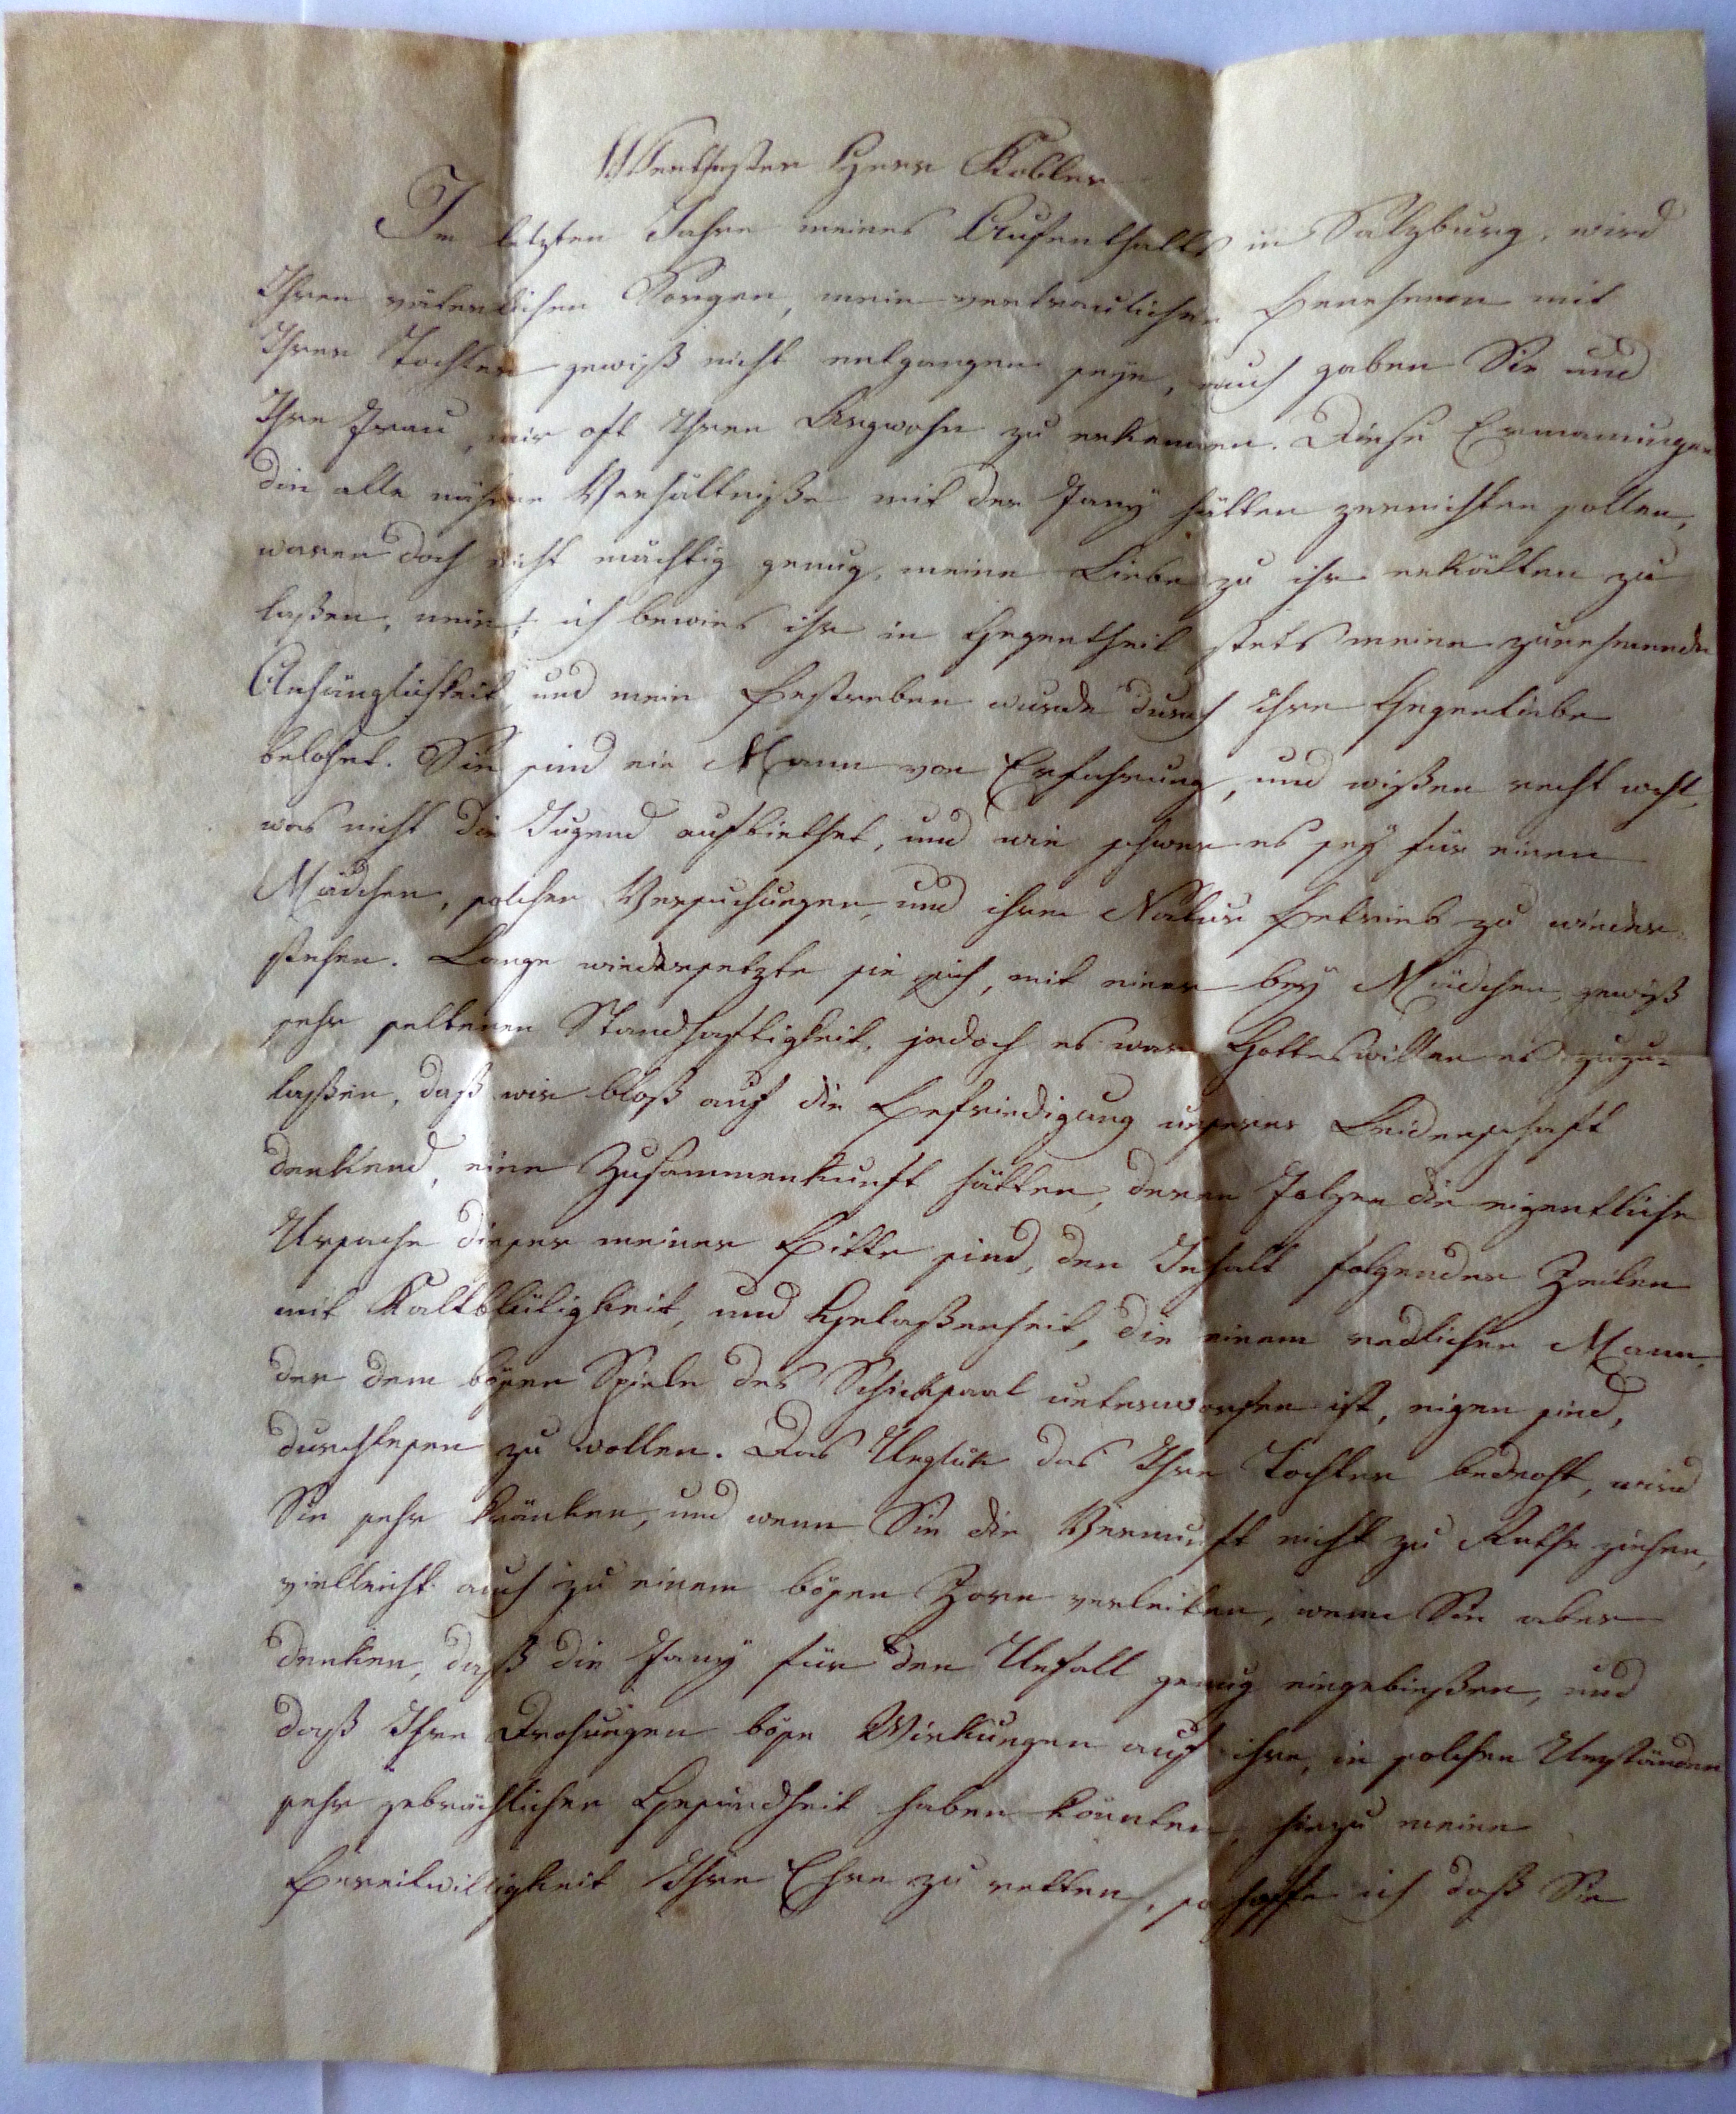 Werthester Herr Kobler
Im letzten Jahre meines Aufenthalts in Salzburg, wird
Ihren väterlichen Sorgen, mein vertrauliches Benehmen mit
Ihrer Tochter gewiß nicht entgangen seyn, auch gaben Sie und
Ihre Frau, mir oft Ihren Argwohn zu erkennen. Diese Ermanungen
die alle nähere Verhältniße mit der Fany hätten zernichten sollen,
waren doch nicht mächtig genug, meine Liebe zu ihr erkälten zu
laßen, nein; ich bewies ihr in Gegentheil stets meine zunehmende
Anhänglichkeit, und mein Bestreben wurde durch ihre Gegenliebe
belohnt. Sie sind ein Mann von Erfahrung, und wißen recht wohl,
was nicht die Jugend aufbiethet, und wie schwer es seÿ für einen
Mädchen, solchen Versuchungen, und ihrem Natur Betrieb zu wieder-
stehen. Lange wiedersetzte sie sich, mit einer beÿ Mädchen, gewiß
sehr seltenen Standhaftigkeit, jedoch es war Gottes willen es zuzu-
laßen, daß wir bloß auf die Befriedigung unserer Leidenschaft
denkend, eine Zusammenkunft hatten, deren Folgen die eigentliche
Ursache dieser meiner Bitte sind, den Inhalt folgender Zeilen
mit Kaltblütigkeit, und Gelaßenheit, die einem redlichen Mann,
der dem bösen Spiele des Schicksaal unterworfen ist, eigen sind,
durchlesen zu wollen. Das Unglük das Ihre Tochter bedroht, wird
Sie sehr kränken, und wenn Sie die Vernunft nicht zu Rathe ziehen,
vielleicht auch zu einem bösen Zorn verleiten, wenn Sie aber
denken, daß die Fanÿ für den Unfall genug eingebießen, und
daß Ihre Drohungen böse Wirkungen auf ihre, in solchen Umständen
sehr gebrächlichen Gesundheit haben könnten, hiezu meine
Bereitwilligkeit Ihre Ehre zu retten, so hoffe ich daß Sie